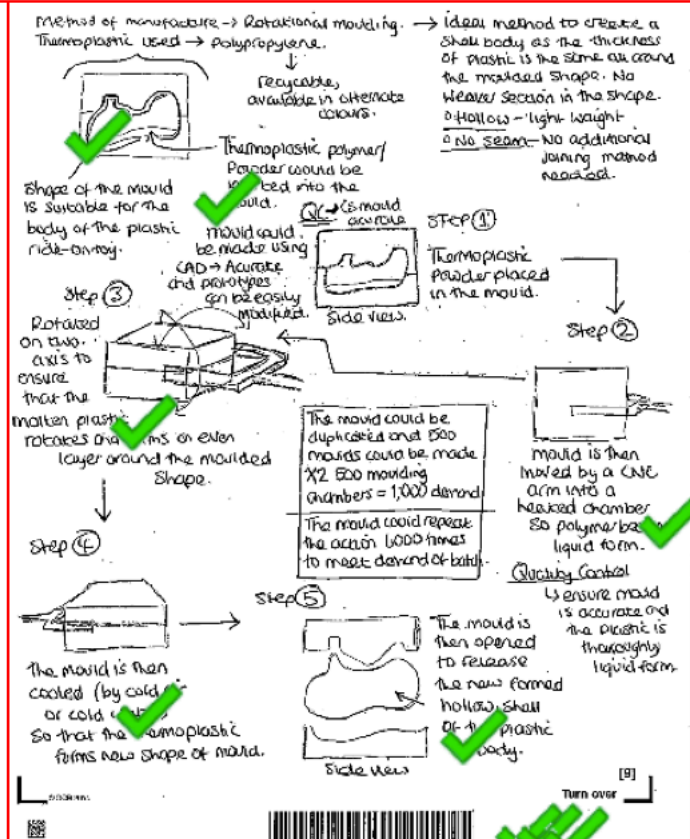 Method of manufacture → Rotational moulding.
Thermoplastic used → polypropylene.
↓
recycable,
available in alternate
colours.
→ ideal method to create a
shell body as the thickness
of plastic is the same all around
the moulded shape. No
weaker section in the shape.
Hollow - light weight
No seam - No additional
joining method
needed.
Shape of the mould
is suitable for the
body of the plastic
ride-on-toy.
Thermoplastic polymer/
Powder would be
into the
mould.
mould could
be made using
CAD → Accurate
and prototypes
can be easily
modified.
QC → is mould
accurate
Side view.
STEP ①
Thermoplastic
Powder placed
in the mould.
Step ②
mould is then
moved by a CNC
arm into a
heated chamber
so polymer
liquid form.
Quality Control
↳ ensure mould
is accurate and
the plastic is
thoroughly
liquid form
Step ③
Rotated
on two
axis to
ensure
that the
molten plastic
rotates and forms an even
layer around the moulded
Shape.
The mould could be
duplicated and 500
moulds could be made
X2 500 moulding
chambers = 1,000 demand
The mould could repeat
the action 1,000 times
to meet demand of batch.
Step ④
The mould is then
cooled (by cold air
or cold
So that the thermoplastic
forms new shape of mould.
Step ⑤
The mould is
then opened
to release
the new formed
hollow shell
of the plastic
body.
Side view
[9]
Turn over